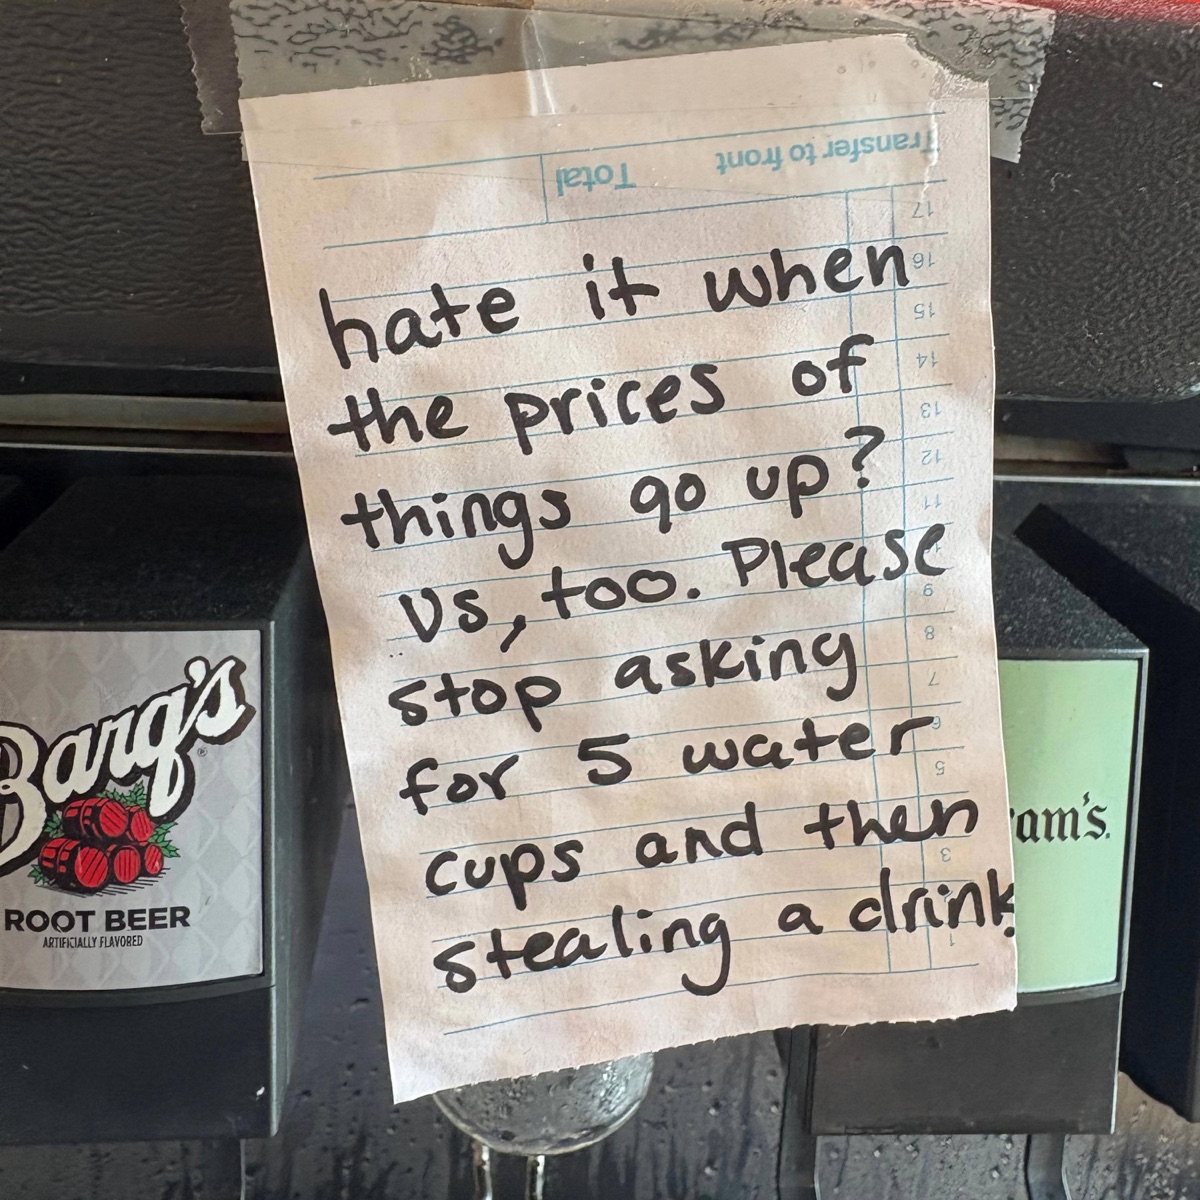 Transfer to front
Total
17
16
15
14
13
12
11
9
8
7
6
5
3
1
hate it when
the prices of
things go up?
Us, too. Please
stop asking
for 5 water
cups and then
stealing a drink.
Barq's
ROOT BEER
ARTIFICIALLY FLAVORED
am's.